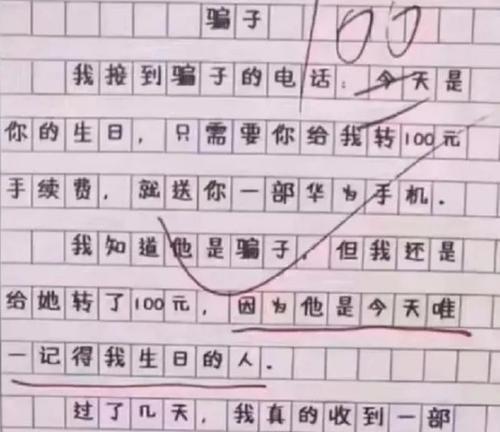 骗子 100
我接到骗子的电话：今天是
你的生日，只需要你给我转100元
手续费，就送你一部华为手机．
我知道他是骗子，但我还是
给她转了100元，因为他是今天唯
一记得我生日的人．
过了几天，我真的收到一部